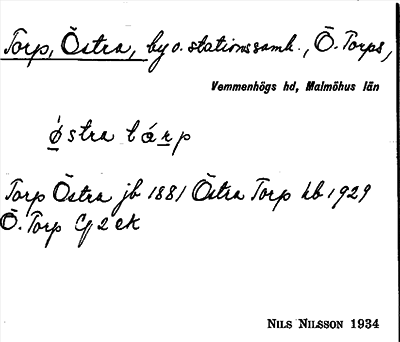 Torp, Östra, by o. stationssamh., Ö. Torps,
Vemmenhögs hd, Malmöhus län
ǿstra tárp
Torp Östra jb 1881 Östra Torp kb 1929
Ö. Torp Cj 2 ek
NILS NILSSON 1934